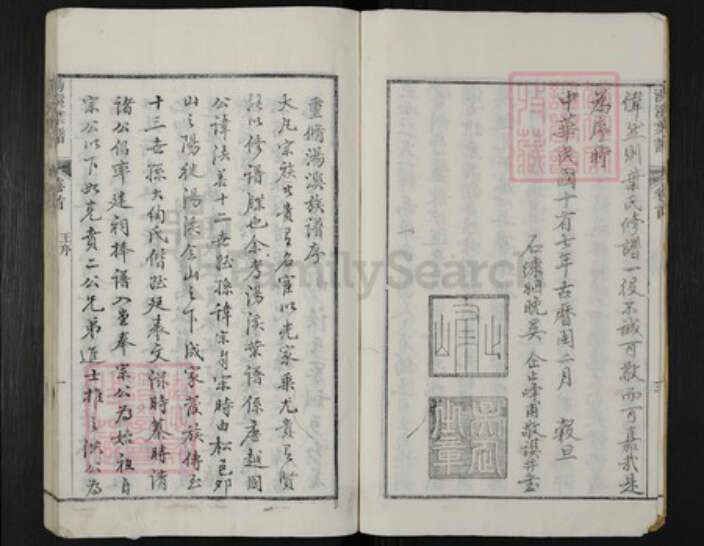 偉然則葉氏修譜一役不誠可敬而可嘉哉是
為序時
中華民國十有七年古曆閏二月 穀旦
石練姻晚吳金山峰甫敬譔并書
重脩湯溪族譜序
大凡宗族也貴有名宦以光家乘尤貴有賢
能以修譜牒也余考湯溪葉譜係唐越國
公諱法善十二世孫諱宗肖宋時由松邑卯
山之陽徙湯溪金山之下成家蕃族傳至
十三世孫大
諸公倡率建祠捧譜入堂奉宗公為始祖自
宗公以下如克貴二公兄弟進士
湯溪葉譜
卷首
王序
FamilySearch